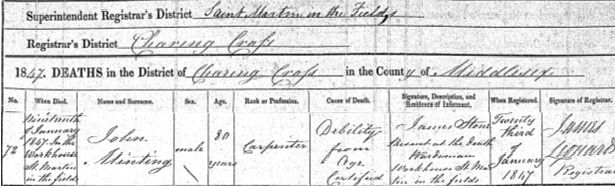 Superintendent Registrar's District Saint Martin in the Fields
Registrar's District Charing Cross
1847. DEATHS in the District of Charing Cross in the County of Middlesex
No. When Died. Name and Surname. Sex. Age. Rank or Profession. Cause of Death. Signature, Description, and Residence of Informant. When Registered. Signature of Registrar.
72 Nineteenth of January 1847 In the Workhouse St. Martin in the fields
John Minting
male
80 years
Carpenter
Debility from Age Certified
James Stone Present at the Death Workhouse St. Martin in the fields
Twenty third of January 1847
James Registrar